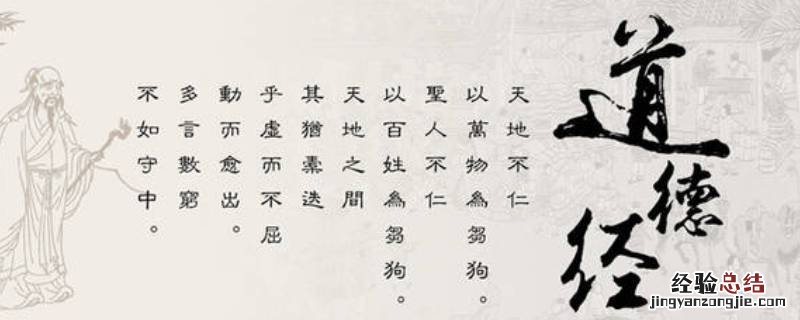 道德经
天地不仁
以萬物為芻狗。
聖人不仁
以百姓為芻狗。
天地之間
其猶橐迭
乎虛而不屈
動而愈出。
多言數窮
不如守中。
经验总结
jingyanzongjie.com